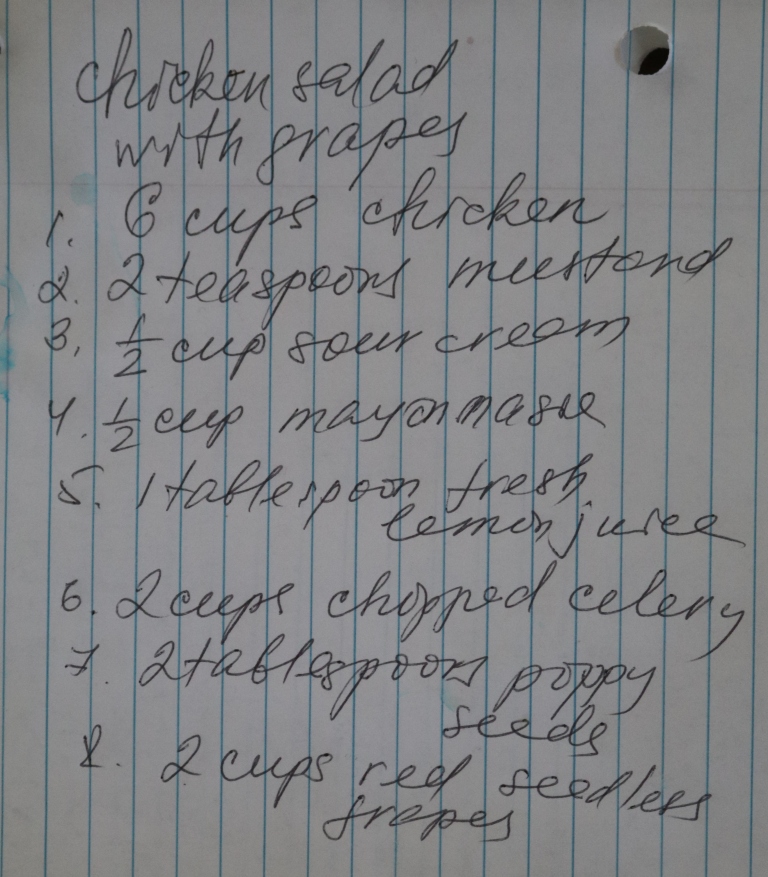 chicken salad
with grapes
1. 6 cups chicken
2. 2 teaspoons mustard
3. 1/2 cup sour cream
4. 1/2 cup mayonnasie
5. 1 tablespoon fresh
lemon juice
6. 2 cups chopped celery
7. 2 tablespoons poppy
seeds
8. 2 cups red seedless
grapes